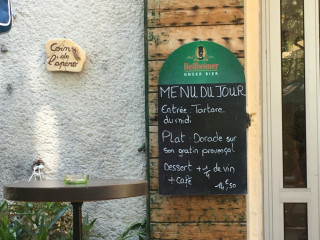 Coin
de
l'apéro
Bellheimer
UNSER BIER
MENU DU JOUR
Entrée Tartare
du midi
Plat Dorade sur
son gratin provençal
Dessert + 1/4 de vin
+ Café
14€,50